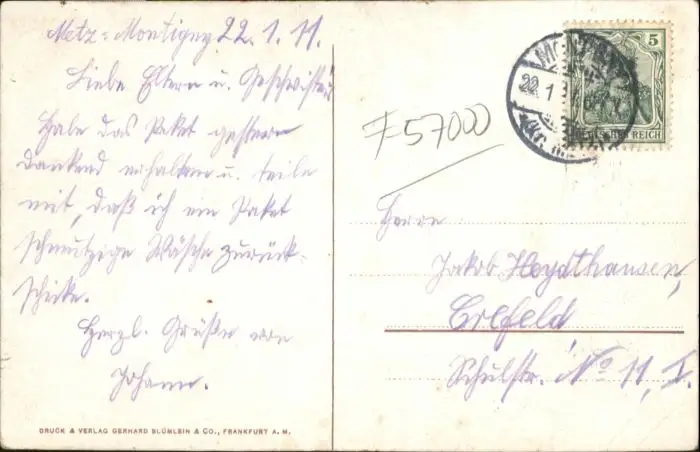 Metz-Montigny 22.1.11.
Liebe Eltern u. Geschwister
Habe das Paket gestern
dankend erhalten u. teile
mit, daß ich ein Paket
schmutzige Wäsche zurück-
schicke.
Herzl. Grüße von
Johann.
DRUCK & VERLAG GERHARD BLÜMLEIN & CO., FRANKFURT A. M.
5
DEUTSCHES REICH
22. 1
57000
Herrn
Jakob Heydthausen,
Crefeld
Schulstr. No 11, I.